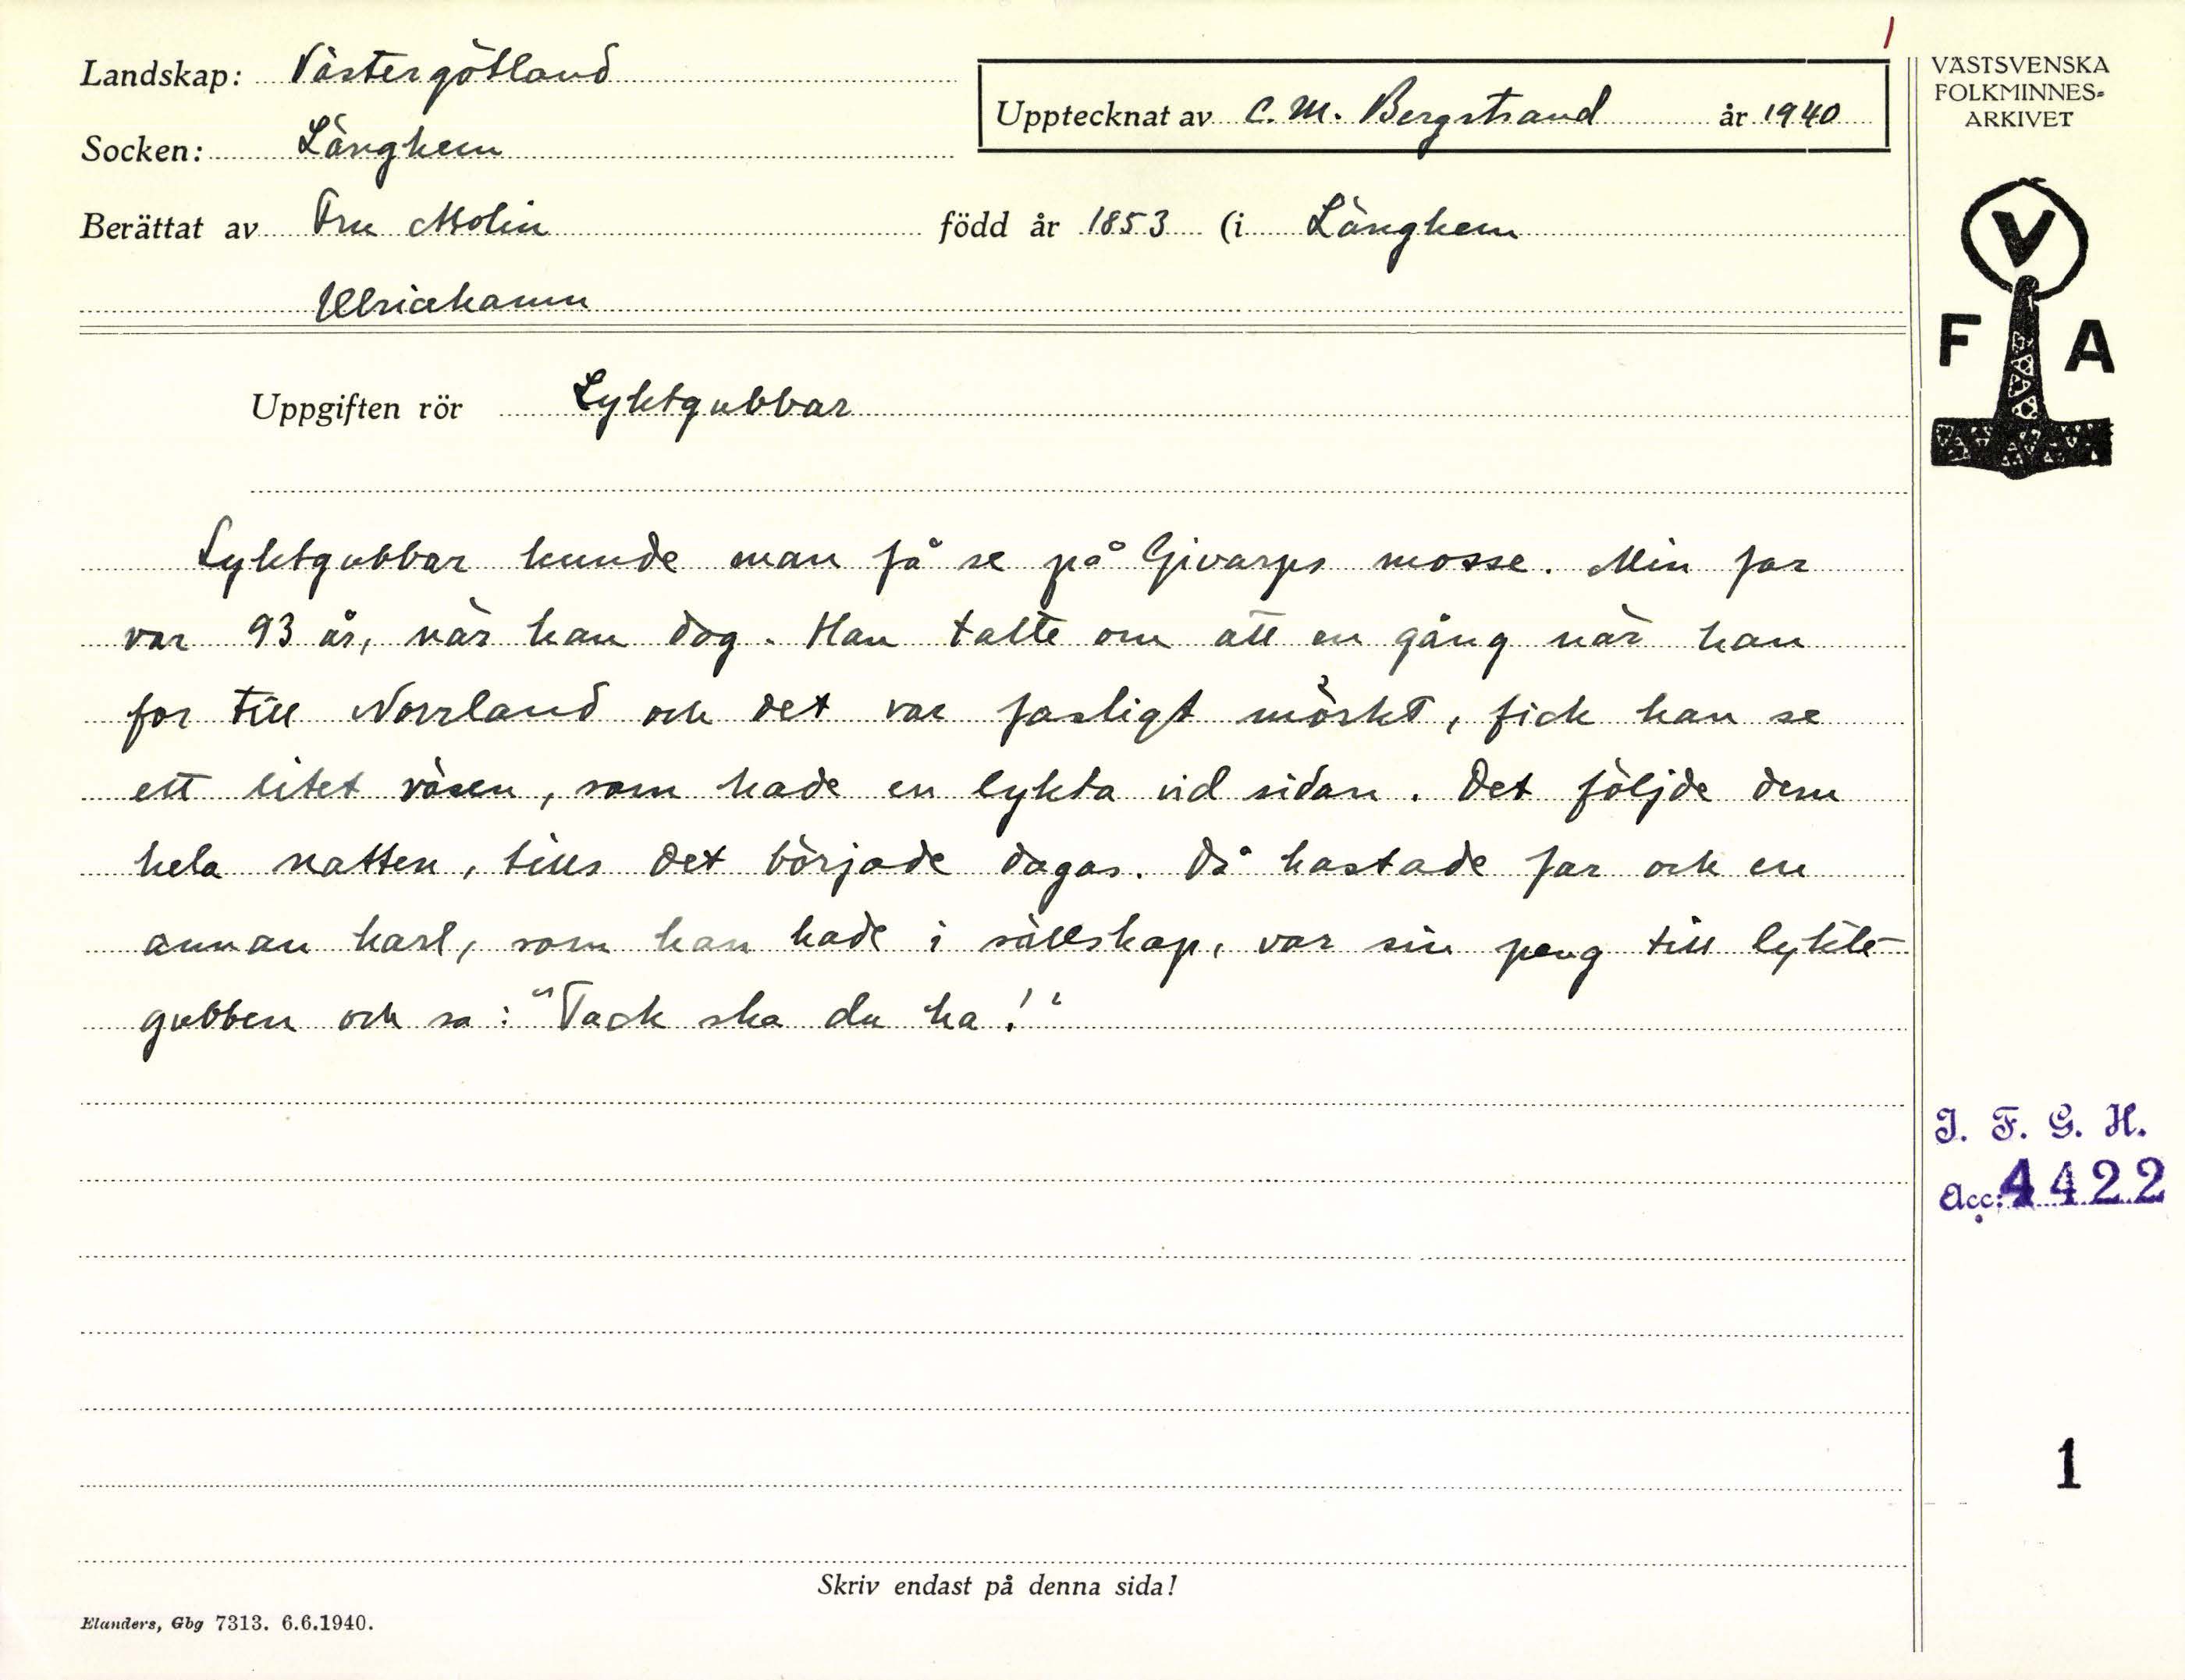 1
Landskap: Västergötland
Upptecknat av C. M. Bergstrand år 1940
Socken: Länghem
Berättat av Fru Molin född år 1853 (i Länghem
Ulricehamn
Uppgiften rör Lyktgubbar
Lyktgubbar kunde man få se på Givarps mosse. Min far
var 93 år, när han dog. Han talte om att en gång när han
for till Norrland och det var fasligt mörkt, fick han se
ett litet väsen, som hade en lykta vid sidan. Det följde dem
hela natten, tills det började dagas. Då kastade far och en
annan karl, som han hade i sällskap, var sin peng till lykte-
gubben och sa: "Tack ska du ha!"
Skriv endast på denna sida!
Elanders, Gbg 7313. 6.6.1940.
VÄSTSVENSKA
FOLKMINNES-
ARKIVET
V
F A
I. F. G. H.
Acc: 4422
1